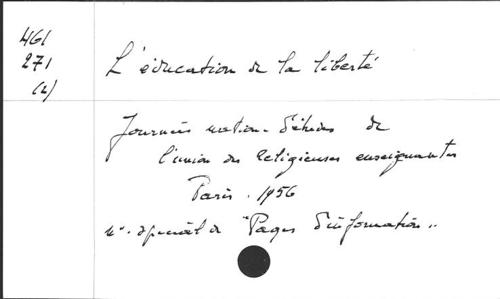 461
271
(2)
L'éducation de la liberté
Journées nation. d'études de
l'union des Religieuses enseignantes
Paris. 1956
n°. spécial de "Pages d'information"